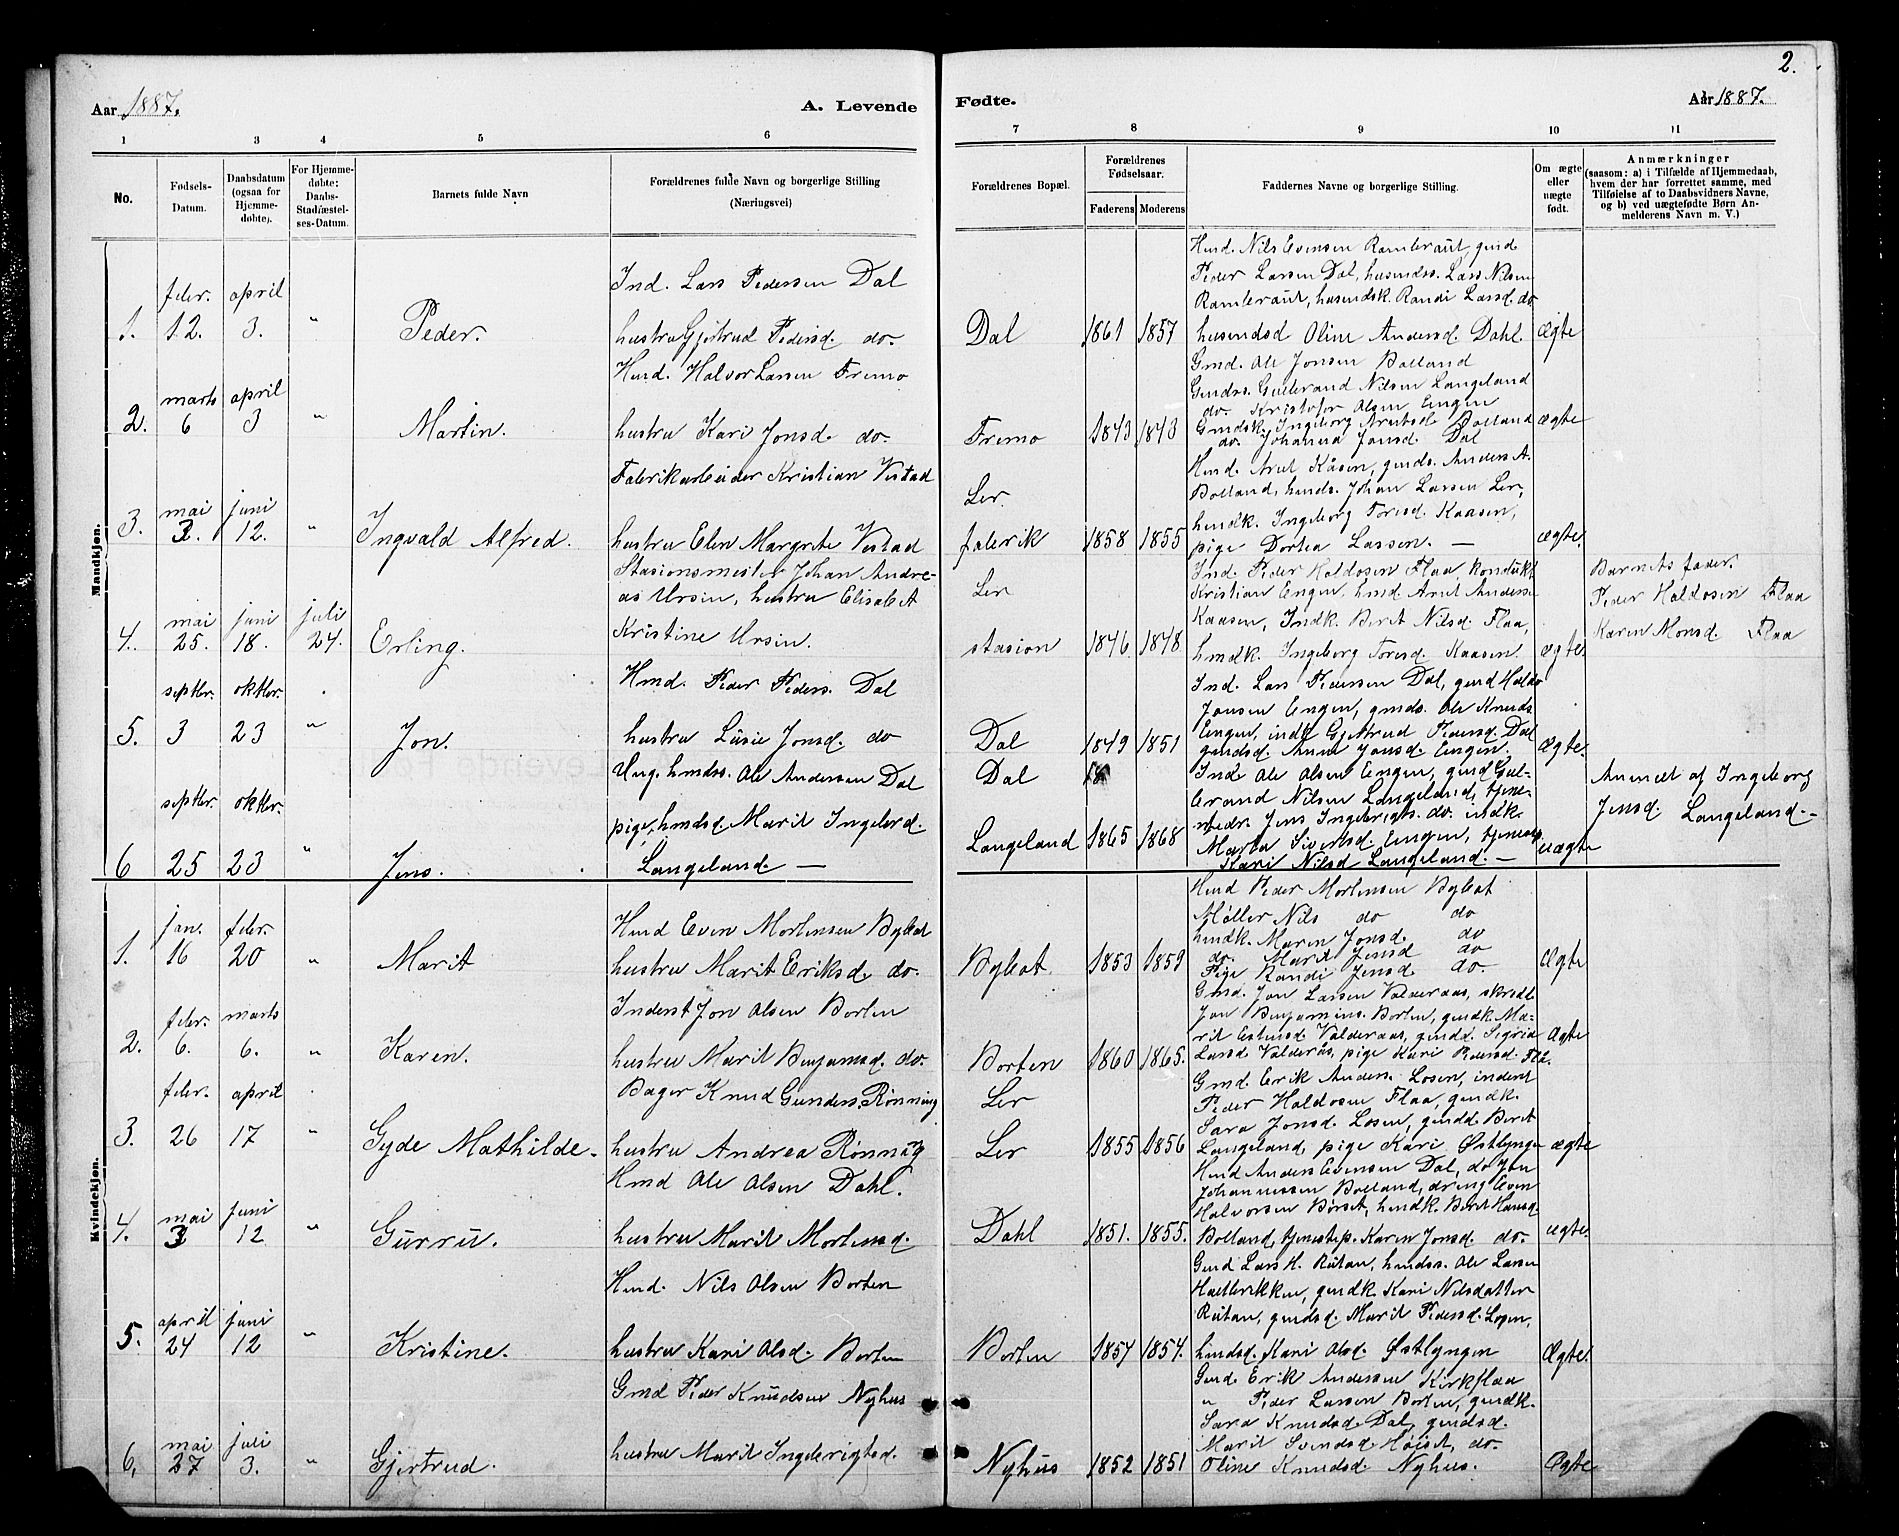 2.
Aar 1887. A. Levende Fødte. Aar 1887.
1 3 4 5 6 7 8 9 10 11
No. Fødsels-Datum. Daabsdatum (ogsaa for Hjemmedøbte). For Hjemmedøbte: Daabs-Stadfæstelses-Datum. Barnets fulde Navn Forældrenes fulde Navn og borgerlige Stilling (Næringsvei) Forældrenes Bopæl. Forældrenes Fødselsaar. Faderens Moderens Faddernes Navne og borgerlige Stilling. Om ægte eller uægte født. Anmærkninger (saasom: a) i Tilfælde af Hjemmedaab, hvem der har forrettet samme, med Tilføielse af to Daabsvidners Navne, og b) ved uægtefødte Børn Anmelderens Navn m. V.)
Mandkjøn.
1. febr. 12. april 3. " Peder.
Ind. Lars Pedersen Dal
hustru Gjertrud Pedersd. do.
Dal 1861 1857
Hmd. Nils Evensen Rambraut, gmd
Peder Larsen Dal, husmdss. Lars Nilsen
Rambraut, husmdsk. Randi Larsd. do
husmdsd Oline Andersd. Dahl.
ægte
2. marts 6 april 3 " Martin.
Hmd. Halvor Larsen Fremo
hustru Kari Jonsd. do.
Fremo 1843 1843
Gmd. Ole Jonsen Bolland
Gmdss. Gulbrand Nilsen Langeland
do. Kristofer Olsen Engen
Gmdsk. Ingeborg Arntsd. Bolland
do. Johanna Jonsd. Dal
ægte
3. mai 3. juni 12. " Ingvald Alfred.
Fabrikarbeider Kristian Vestad
hustru Elen Margrete Vestad
Ler fabrik 1858 1855
Hmd. Arnt Kåsen, gmds. Anders A.
Bolland, hmds. Johan Larsen Ler,
hmdk. Ingeborg Toresd. Kaasen,
pige Dortea Larsen. —
ægte.
4. mai 25. juni 18. juli 24. Erling.
Stasionsmester Johan Andre-
as Ursin, hustru Elisabet
Kristine Ursin.
Ler stasion 1846. 1848
Ind. Peder Haldosen Flaa, kondukt.
Kristian Engen, hmd. Arnt Anderse
Kaasen, Indk. Berit Nilsd. Flaa,
hmdk. Ingeborg Toresd. Kaasen.
ægte.
Barnets fader.
Peder Haldosen Flaa
Karen Monsd. Flaa
5. septbr. 3 oktbr. 23 " Jon.
Hmd. Peder Peders. Dal
hustru Lusie Jonsd. do
Dal 1849 1851
Ind. Lars Pedersen Dal, gmd Haldo
Jonsen Engen, gmds. Ole Knuds.
Engen, indk Gjertrud Pedersd. Dal
gmdsd. Anne Jonsd. Engen.
ægte.
6 septbr. 25 oktbr. 23 " Jens.
Ung. hmdss. Ole Andersen Dal
pige, hmdsd. Marit Ingebrd.
Langeland. —
Dal 18
Langeland 1865 1868
Ind. Ole Olsen Engen, gmd Gul-
brand Nilsen Langeland, tjene-
stedr. Jens Ingebrigts. do. indk.
Marta Sivertsd. Engen, tjenesp
Kari Nilsd Langeland. —
uægte
Anmeldt af Ingeborg
Jensd. Langeland. —
Kvindekjøn.
1. jan. 16 febr. 20 " Marit
Hmd Even Mortensen Bykat
hustru Marit Eriksd. do.
Bykat 1853 1859
Hmd Peder Mortensen Bykat
Møller Nils do do
hmdk. Maren Jonsd. do
do. Marit Jensd do
Pige Randi Jensd. do.
Ægte
2. febr. 6. marts 6. " Karen.
Inderst Jon Olsen Borten
hustru Marit Benjamsd. do.
Borten 1860 1865.
Gmd. Jon Larsen Valderaas, skredd.
Jon Benjamins. Borten, gmdk. Ma-
rit Estensd. Valderaas, gmdd. Sigrid
Larsd. Valderås, pige Kari Pedersd. Flå.
Ægte
3. febr. 26 april 17 " Gyde Mathilde.
Bager Knud Gunders. Rønning
hustru Andrea Rønning
Ler
Ler 1855 1856
Gmd. Erik Anders. Losen, inderst
Peder Haldosen Flaa, gmdk.
Sara Jonsd. Losen, gmdd. Berit
Langeland, pige Kari Østlyngen
ægte
4. mai 3 juni 12 " Gurru.
Hmd Ole Olsen Dahl.
hustru Marit Mortensd.
Dahl 1851. 1855.
Hmd Anders Evensen Dal, do Jon
Johannessen Bolland, dreng Even
Halvorsen Børset, hmdk. Berit Hansd.
Bolland, tjenestep. Karen Jonsd. do.
ægte.
5. april 24 juni 12 " Kristine.
Hmd. Nils Olsen Borten
hustru Kari Olsd. Borten
Borten 1857 1854.
Gmd Lars H. Rutan, hmdss. Ole Larsen
gmdk. Kari Nilsdatter
Rutan, gmdsd. Marit Pedersd. Losen,
hmdsd. Kari Olsd. Østlyngen
Ægte.
6, mai 27 juli 3. " Gjertrud.
Gmd Peder Knudsen Nyhus
hustru Marit Ingebrigtsd.
Nyhus 1852 1851
Gmd. Erik Andersen Kirkflaa
" Peder Larsen Borten, gmdk.
Sara Knudsd. Dal, gmdsd.
Marit Svendsd. Høiset, do.
Oline Knudsd. Nyhus.
Ægte